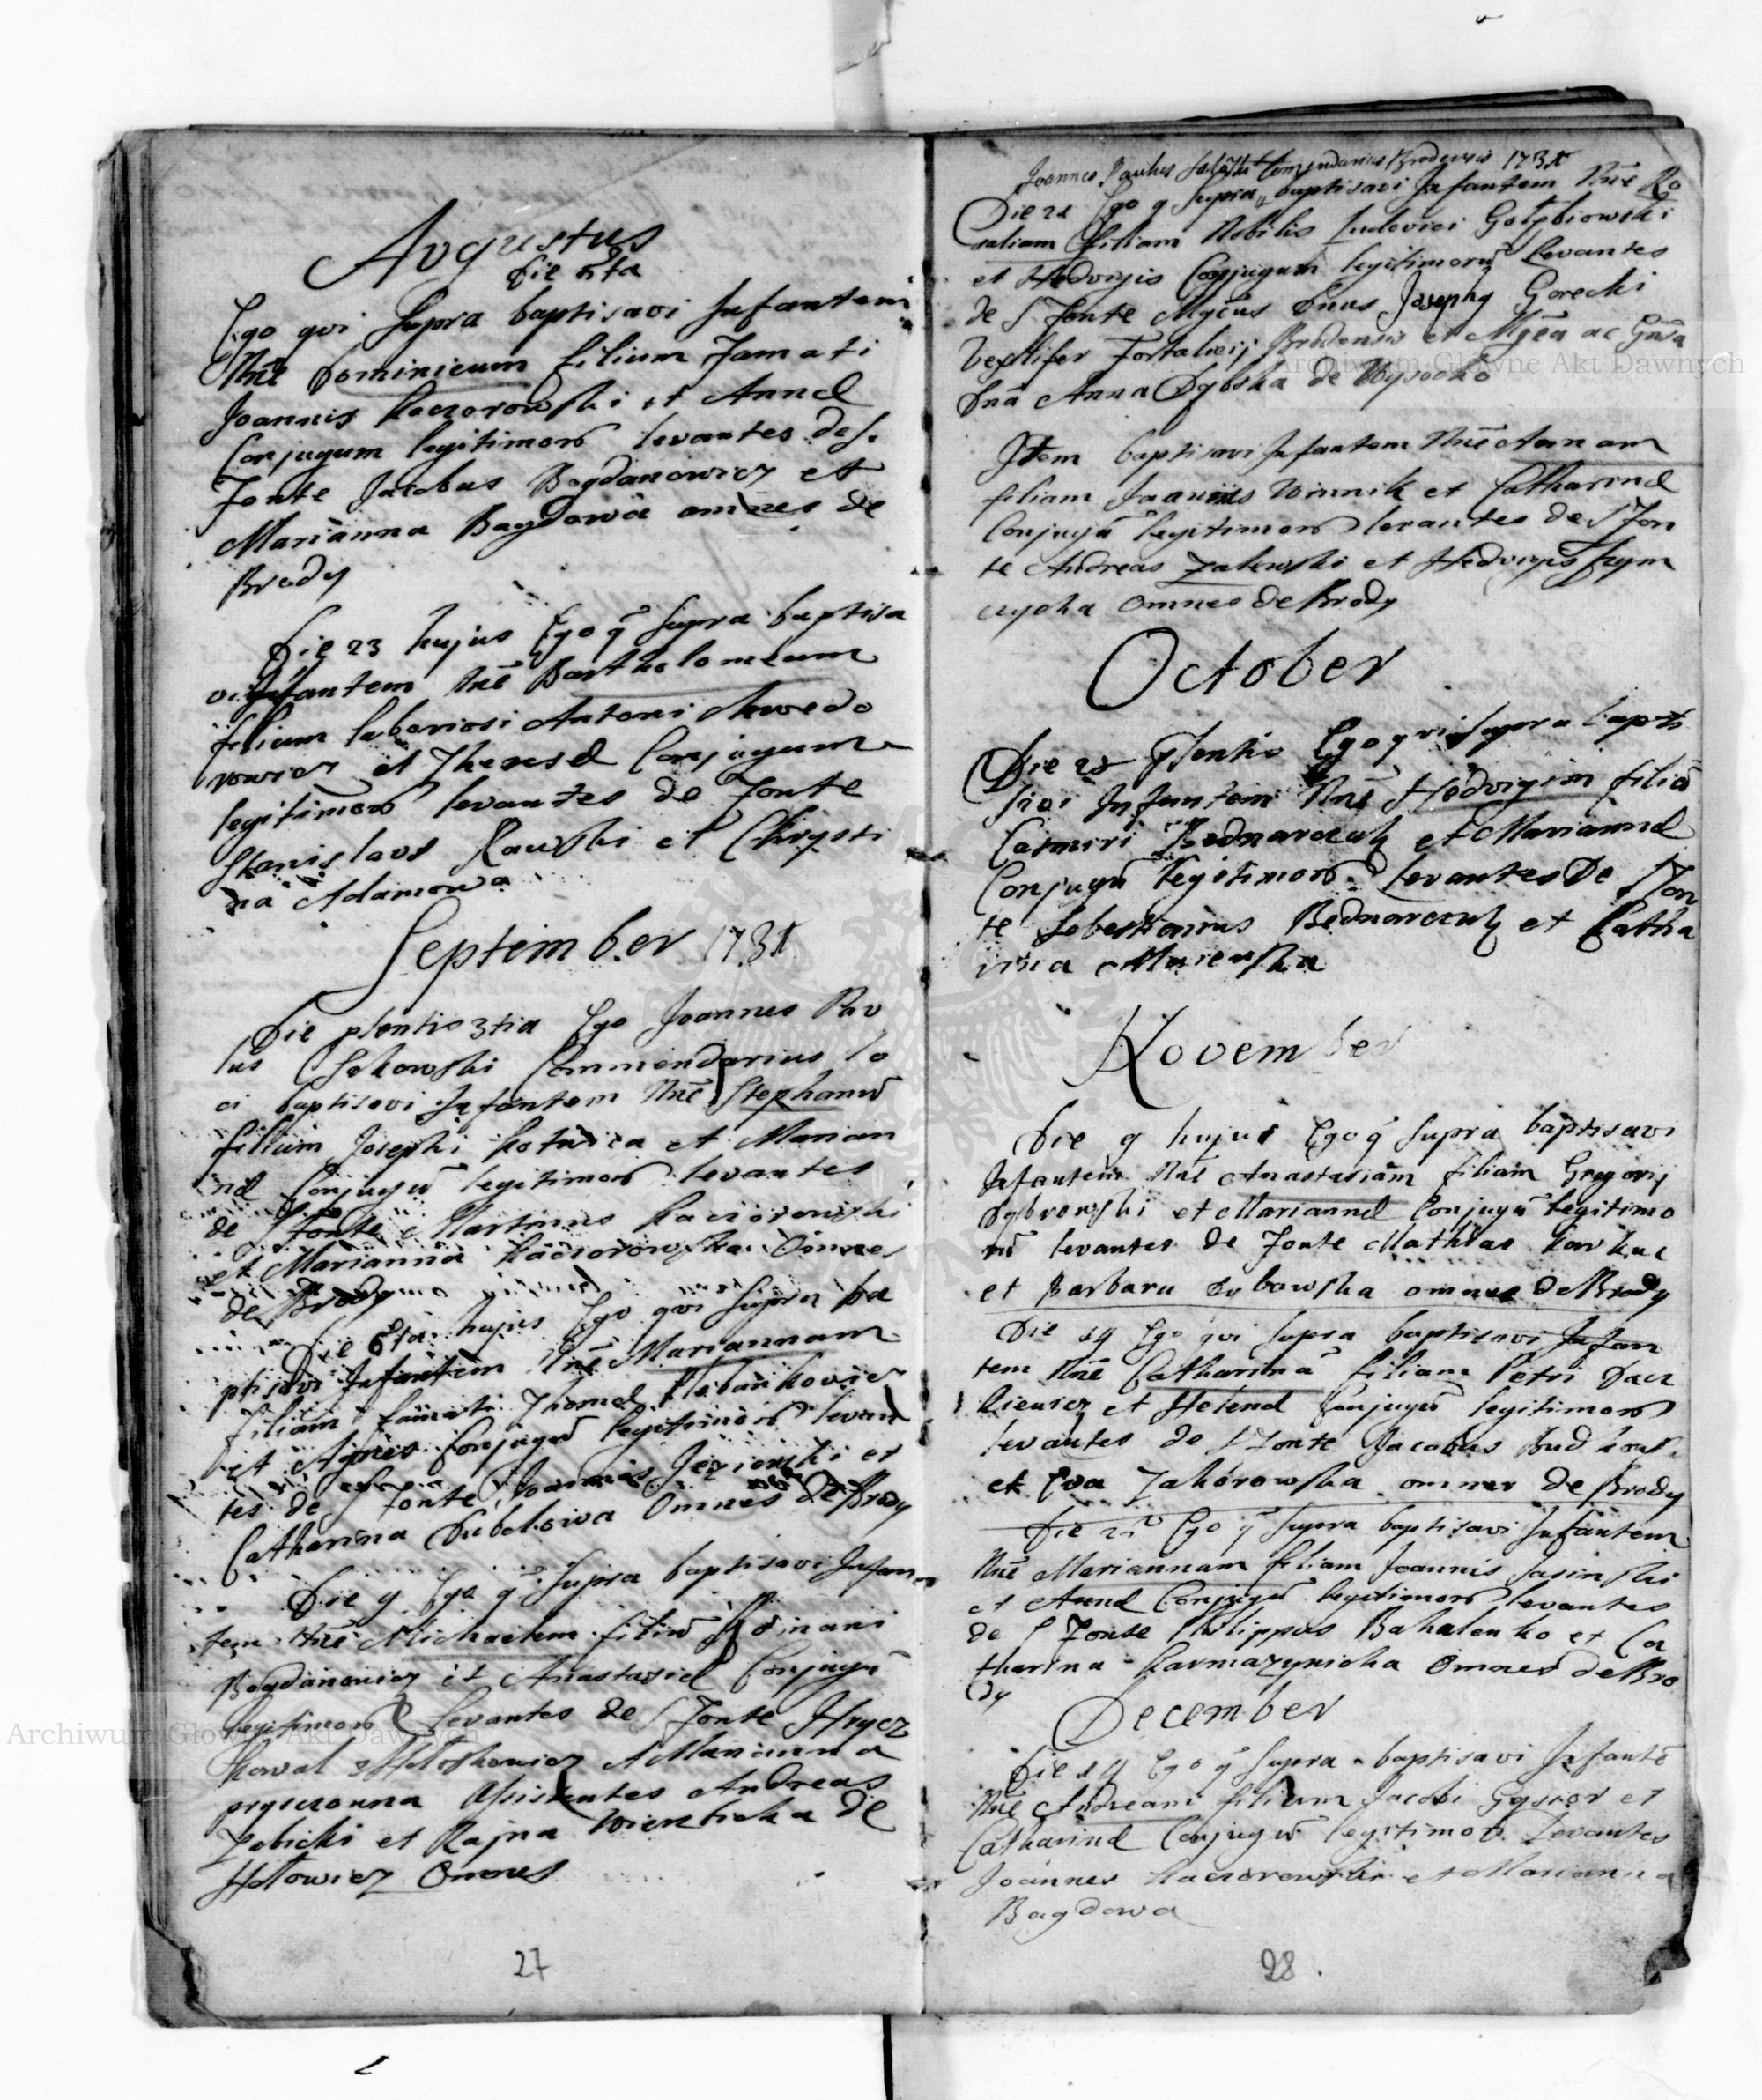 Augustus
Die 5ta
Ego qui supra baptisavi Infantem
Nñe Dominicum filium Famati
Joannis Kaczorowski et Annæ
Conjugum legitimorũ levantes de S.
Fonte Jacobus Bogdanowicz et
Marianna Bagdowa omnes de
Brody
Die 23 hujus Ego q̃ supra baptisa
vi Infantem Nñe Bartholomeum
filium laboriosi Antoni
et Theresæ Conjugum
legitimorũ levantes de Fonte
Stanislaus Rawski et Chrysti
na Adamowa
September 173
Die p̃sentis 3tia Ego Joannes Pau
lus Commendarius lo
ci baptisavi Infantem Nñe Stephanũ
filium Josephi Kotwica et Marian
næ Conjugũ legitimorũ levantes
de S Fonte Martinus Kaczorowski
et Marianna Kaczorowska Omnes
de Brody
Die 6ta hujus Ego qui supra ba
ptisavi Infantem Nñe Mariannam
filiam Famati Thomæ
et Agnes Conjugũ legitimorũ levan
tes de S Fonte Joannes et
Catharina Omnes de Brody
Die 9 Ego q̃ supra baptisavi Infan
tem Nñe Michaelem filiũ
Bogdanowicz et Anastasiæ Conjugũ
legitimorũ levantes de S Fonte Hrycz
Kowal et Marianna
Assistentes Andreas
Zebicki et Wierzbicka de
Omnes
27
Joannes Paulus Commendarius Brodensis 173
Die 21 Ego q supra baptisavi Infantem Nñe Ro
saliam filiam Nobilis Ludovici Gołębiowski
et Hedvigis Conjugum legitimorũ levantes
de S Fonte Mgcus Dnus Josephq Gorecki
Vexilifer Fortalicij Brodensis et Mgca ac Gnsa
Dnã Anna Dębska de Wysocko
Item baptisavi Infantem Nñe Annam
filiam Joannis Winnik et Catharinæ
Conjugũ legitimorũ levantes de S Fon
te Andreas Zalewski et Hedvigis Szym
czycha Omnes de Brody
October
Die 28 p̃sentis Ego qui supra bapti
savi Infantem Nñe Hedvigim filiã
Casimiri Bednarczuk et Mariannæ
Conjugũ legitimorũ levantes de S Fon
te Sebestianus Bednarczuk et Catha
rina
November
Die 9 hujus Ego q̃ supra baptisavi
Infantem Nñe Anastasiam filiam Gregorij
Dąbrowski et Mariannæ Conjugũ legitimo
rũ levantes de Fonte Mathias
et Barbara omnes de Brody
Die 19 Ego qui supra baptisavi Infan
tem Nñe Catharinã filiam Petri Dacz
kiewicz et Helenæ Conjugũ legitimorũ
levantes de S Fonte Jacobus
et Eva Zahorowska omnes de Brody
Die 25 Ego q̃ supra baptisavi Infantem
Nñe Mariannam filiam Joannis Jasinski
et Annæ Conjugũ legitimorũ levantes
de S Fonte Philippus Bahalenko et Ca
tharina Karmazynicha Omnes de Bro
dy
December
Die 19 Ego q̃ supra baptisavi Infantẽ
Nñe Andream filium Jacobi et
Catharinæ Conjugũ legitimorũ Levantes
Joannes Kaczorowski et Marianna
Bagdowa
28
Archiwum Główne Akt Dawnych
Archiwum Główne Akt Dawnych